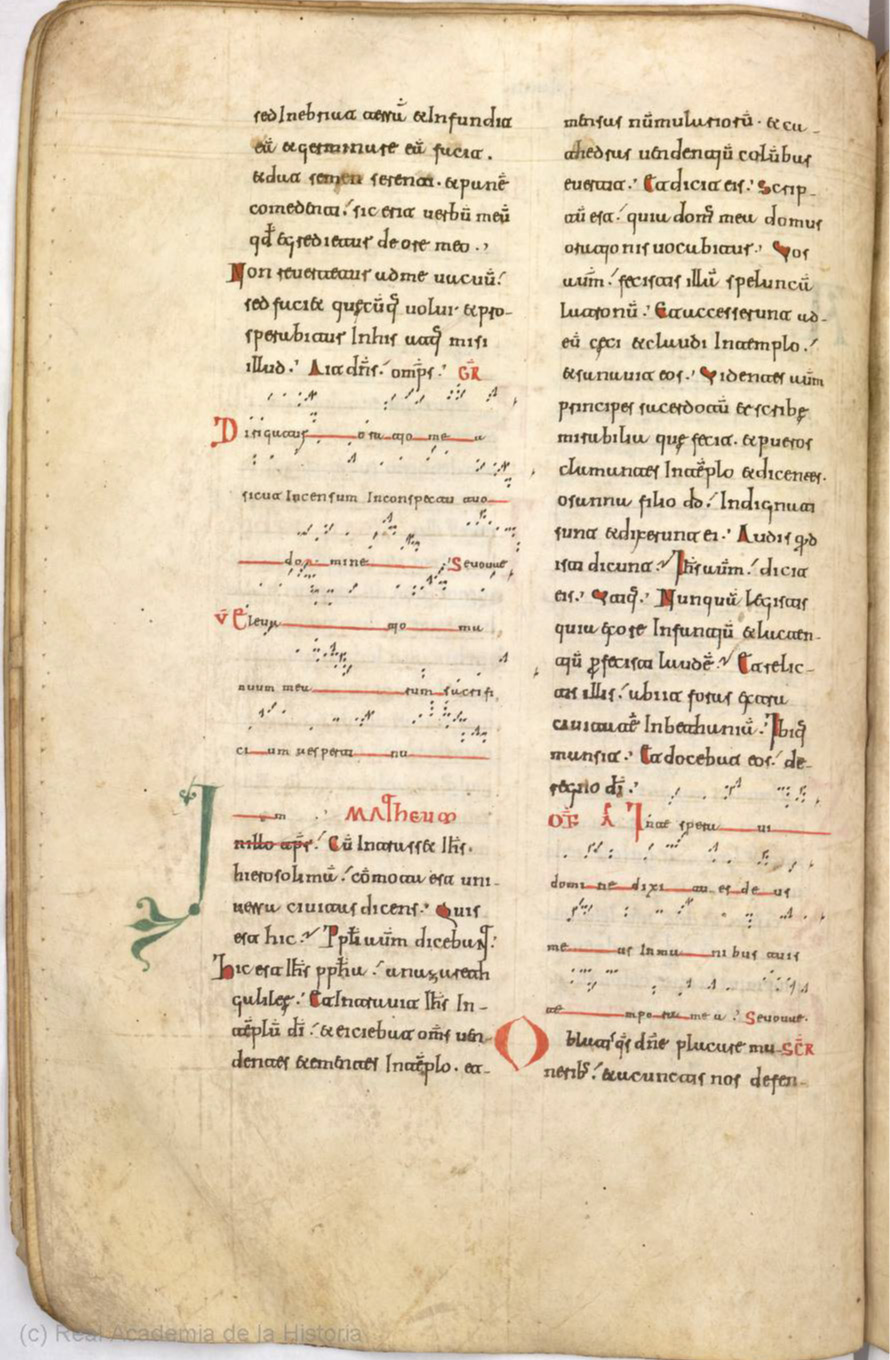 sed Inebriat terrã & Infundit
eã & germinare eã facit.
& dat semen serenti. & panẽ
comedenti. sic erit uerbũ meũ
qđ egredietur de ore meo.
Non reuertetur ad me uacuũ.
sed faci& quęcũq; uolui & pro-
sperabitur In his ad q̃ misi
illud. Ait dñs. omp̃s. GR̃
Dirigatur oratio mea
sicut Incensum Inconspectu tuo
domine Seuouae
V̄ Eleua tio ma
nuum mea rum sacrifi
ci um uesperti nu
m MATHEUM
In illo tp̃r. Cũ Intrass& Ihs̃.
hierosolimã. cõmota est uni-
uersa ciuitas dicens. Quis
est hic. Pplĩ autm̃ dicebant.
Hic est Ihs̃ pph̃a. a nazareth
galileę. Et Intrauit Ihs̃ In
tẽplũ dĩ. & eiciebat om̃s uen-
dentes & ementes In tẽplo. et
mensas nũmulariorũ. & ca-
thedras uendentiũ colũbas
euertit. Et dicit eis. Scrip-
tũ est. quia dom̃s mea domus
orationis uocabitur. Vos
autm̃. fecistis illã speluncã
latronũ. Et accesserunt ad-
eũ cęci & claudi In templo.
& sanauit eos. Videntes autm̃
principes sacerdotũ & scribę
mirabilia quę fecit. & pueros
clamantes In tẽplo & dicentes.
osanna filio dd. Indignati
sunt & dixerunt ei. Audis quod
isti dicunt. Ihs̃ autm̃. dicit
eis. Vtiq;. Nunquã legistis
quia ex ore Infantiũ & lacten-
tiũ p̱fecisti laudẽ. Et relic-
tis illis. abiit foras extra
ciuitatẽ In bethaniã. Ibiq;
mansit. Et docebat eos. de-
regno dĩ.
OF̃ Inte spera ui
domi ne dixi tu es de us
me us In ma ni bus tuis
te mpo ra me a. Seuouae.
Oblatis q̃s dñe placare mu- SCR̃
neribꝫ. & a cunctis nos defen-
(c) Real Academia de la Historia